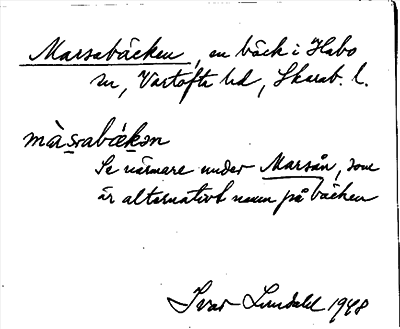 Marsabäcken, en bäck i Habo
sn, Vartofta hd, Skarab. l.
màsrabǽkən
Se närmare under Marsån, som
är alternativt namn på bäcken
Ivar Lundahl 1948